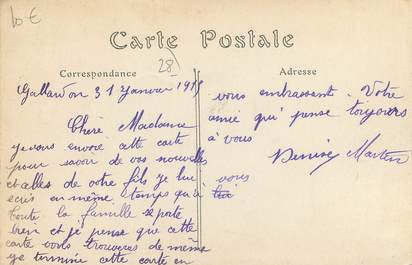 10€
Carte Postale
Correspondance
28
Adresse
Gallardon 31 janvier 1915
Chere Madame
je vous envoie cette carte
pour savoir de vos nouvelles
et celles de votre fils je lui
ecris en même temps qu'à vous
toute la famille se porte
bien et je pense que cette
carte vous trouveras de même
je termine cette carte en
vous embrassent. Votre
amie qui pense toujours
à vous
Denise Martin